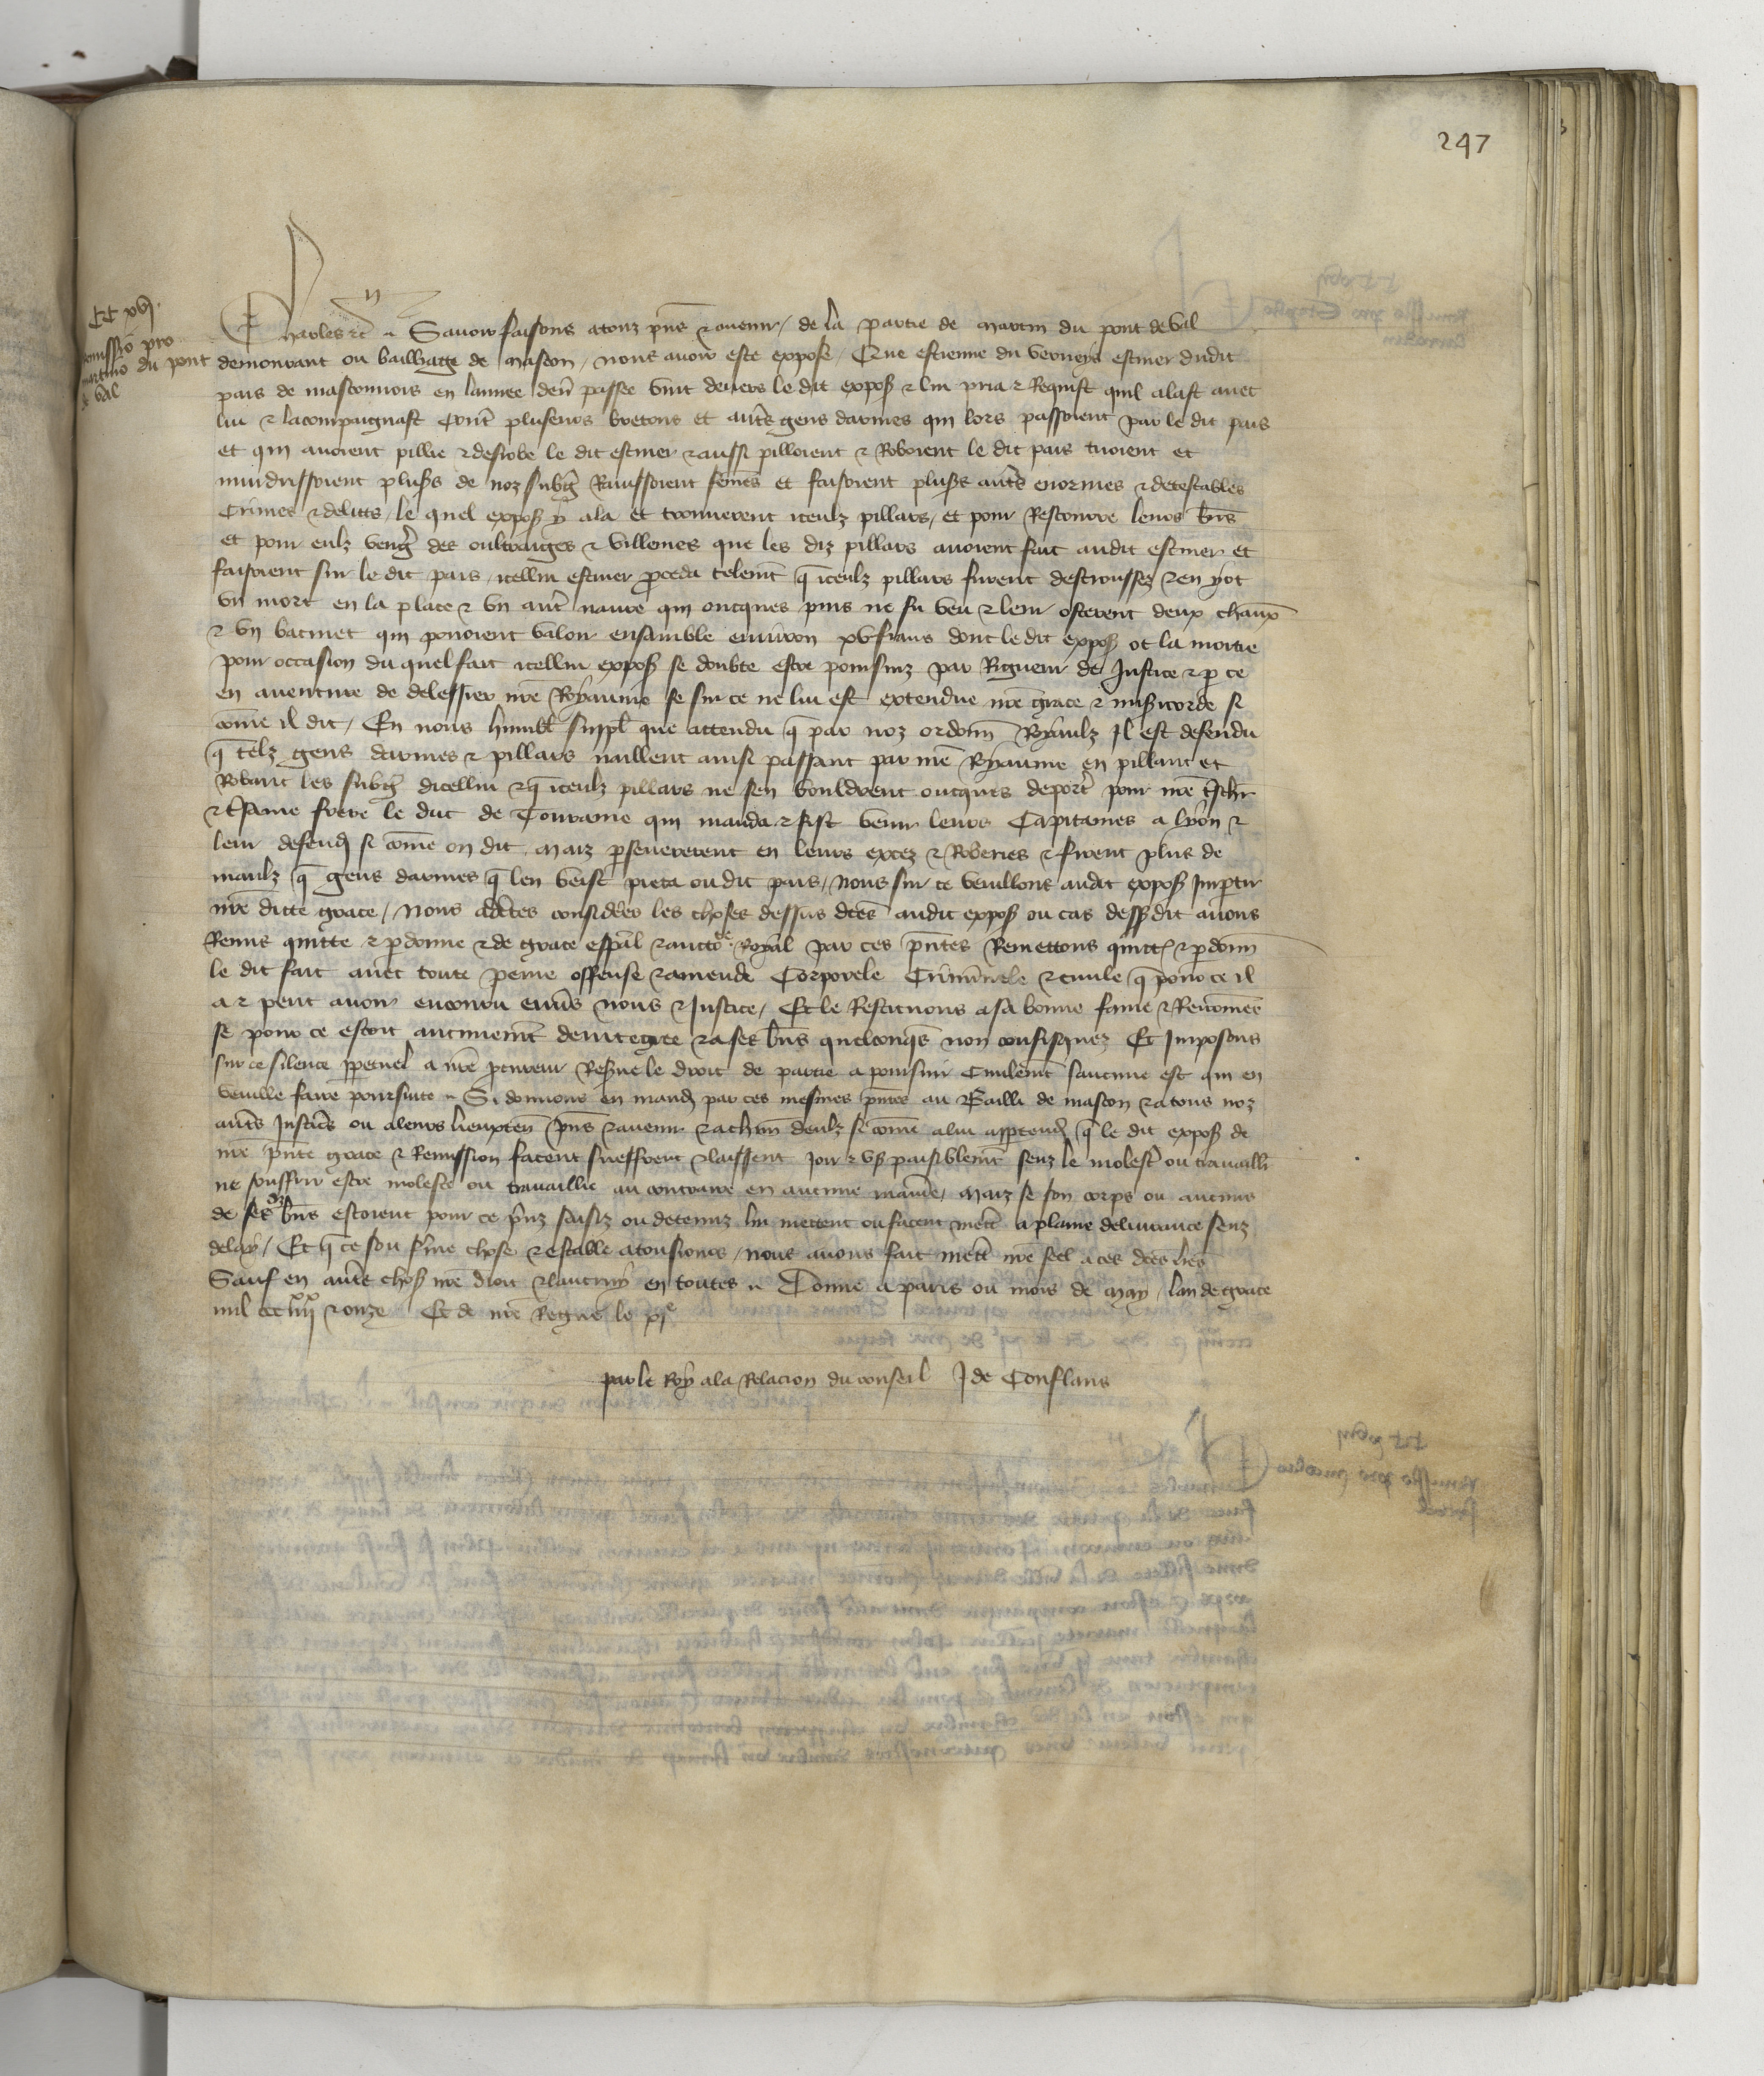 247
CC xvj.
Remissio pro
martino du pont
de val
Charles etc. Savoir faisons a touz pñs et avenir / de la partie de martin du pont de val
demourant ou bailliage de mascon / nous avoir este expose / Que estienne du verneys escuier dudit
pais de masconnois en lannee derñ passee vint devers le dit expoß et lui pria et Requist quil alast avec
lui et lacompaignast contre pluseurs bretons et autres gens darmes qui lors passoient par le dit pais
et qui avoient pillie et desrobe le dit escuier et aussi pilloient et Roboient le dit pais tuoient et
murdrissoient plus's de noz subg' Ravissoient femes et faisoient plus's aut's enormes et detestables
Crimes et delitts / le quel expoß y ala et trouverent iceulz pillars / et pour Rescourre leurs biens
et pour eulz veng' des oultraiges et villenies que les diz pillars avoient fait audit escuier et
faisoient sur le dit pais / icellui escuier proceda telemt q iceulz pillars furent destroussez et en y ot
un mort en la place et un aut' navre qui oncques puis ne fu veu et leur osterent deux chevaux
et un bacinet qui povoient valoir ensamble environ xv frans dont le dit expoß ot la moitie
pour occasion du quel fait icellui expoß se doubte estre poursuiz par Rigueur de Justice et p ce
en aventure de delessier nre Royaume se sur ce ne lui est extendue nre grace et mis'icorde si
come il dit / En nous humbl' suppl' que attendu q par noz ordonn' Royaulz Il est defendu
q telz gens darmes et pillars naillent ainsi passant par nre Royaume en pillant et
Robant les subg' dicellui et q iceulz pillars ne sen vouldrent oncques deport' pour nre t'schr
et t'same frere le duc de Touraine qui manda et fist venir leurs Capitaines a lyon et
leur defendi si come on dit maiz perseverent en leurs excez et Roberies et firent plus de
maulz q gens darmes q len veist pieca ou dit pais / nous sur ce veuillons audit expoß Impartir
nre ditte grace / Nous adcertes considere les choses dessus dctes audit expoß ou cas dessß dit avons
Remis quitte et pardonne et de grace esp'al et auctorite Royal par ces pñtes Remettons quitt' et pardonn'
le dit fait avec toute peine offense et amende Corporele Criminele et civile q pour ce il
a et peut avoir encouru envers nous et Justice / Et le Restituons a sa bonne fame et Renomee
se pour ce estoit aucunemt denuegree et a ses biens quelconqs non confisquez Et Imposons
sur ce silence perpetuel a nre procureur Res've le droit de partie a poursuir Civilemt saucune est qui en
veuille faire poursuite Si donnons en mand' par ces mesmes pñtes au Bailli de mascon et a tous noz
autres Justiciers ou a leurs lieuxten' pñs et avenir et a chun deulz si come a lui appartendr' q le dit expoß de
nre pñte grace et Remission facent sueffrent et laissent joir et usß paisiblemt senz le molest' ou travaill'
ne souffrir estre moleste ou travaillie au contraire en aucune maniere / maiz se son corps ou aucuns
de sesdiz biens estoient pour ce pris saisiz ou detenuz lui mettent ou facent mett' a plaine delivrance senz
delay / Et q ce soit ferme chose et estable a tousiours / nous avons fait mett' nre seel a ces dctes lres
Sauf en autres choß nre droit et lautruy en toutes Donne a paris ou mois de may / lan de grace
mil ccc iiijxx et onze Et de nre Regne le xje
par le Roy a la Relacion du conseil J de Conflans